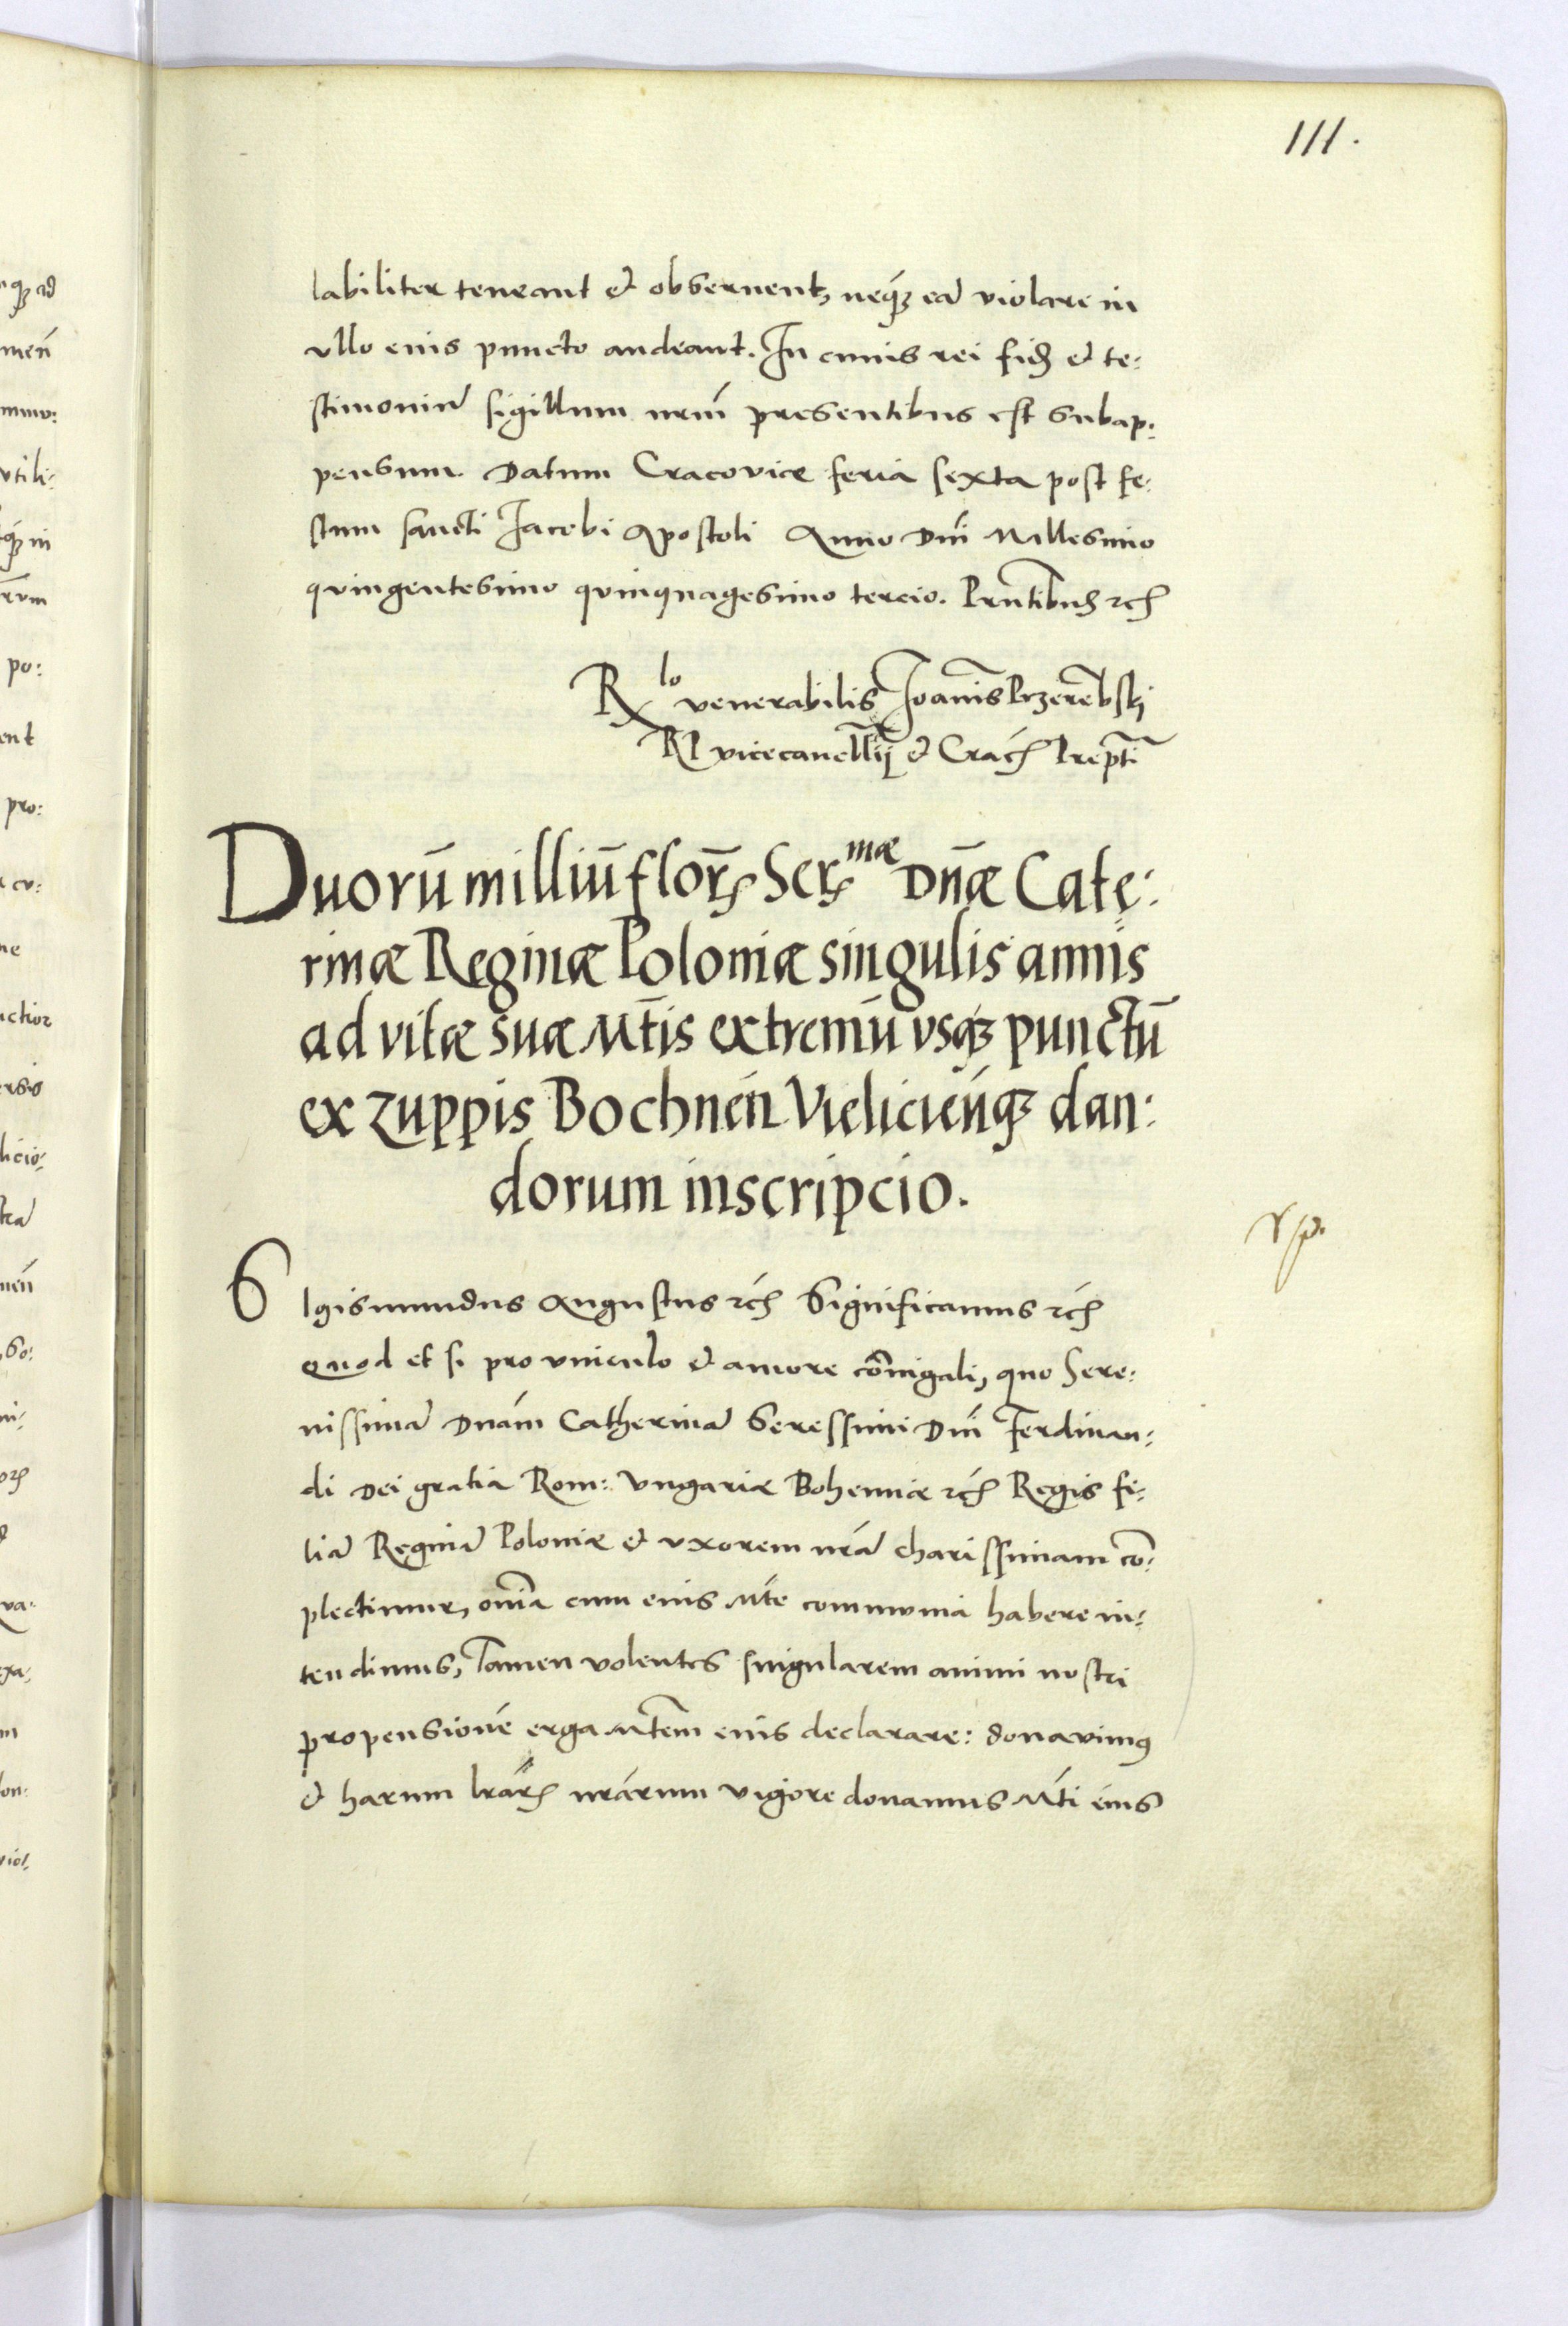 111.
labiliter teneant et observent, neq3 eā violare in
ullo eius puncto audeant. In cuius rei fidē et te:
stimoniū sigillum nrm̄ presentibus est subap:
pensum. Datum Cracoviæ feria sexta post fe:
stum sancti Jacobi Apostoli Anno Dn̄i Millesimo
quingentesimo quinquagesimo tercio. Prn̄tibus etc̄
Rlo venerabilis Joan̄is Przerēbski
R P vicecancell̄ij et Crac̄ Prepti
Duorū milliū florꝝ Sermae Dn̄æ Cate:
rinæ Reginæ Poloniæ singulis annis
ad vitæ suæ Mt̄is extremū usq3 punctū
ex zuppis Bochnēn Vieliciēnq3 dan:
dorum inscripcio.
Sigismundus Augustus etc̄ Significamus etc̄
quod et si pro vniculo et amore cōniugali, quo Sere:
nissimā Dnām Catherinā Seressimi Dn̄i Ferdinan:
di Dei gratia Rom: Vngariæ Bohemiæ etc̄ Regis fi:
liā Reginā Poloniæ et uxorem nrā charissimam cō:
plectimur, om̄ia cum eius Mt̄e communia habere in:
tendimus, Tamen volentes singularem animi nostri
propensionē erga Mt̄em eius declarare: donavimus
et harum lrārꝝ nrārum vigore donamus Mt̄i eius